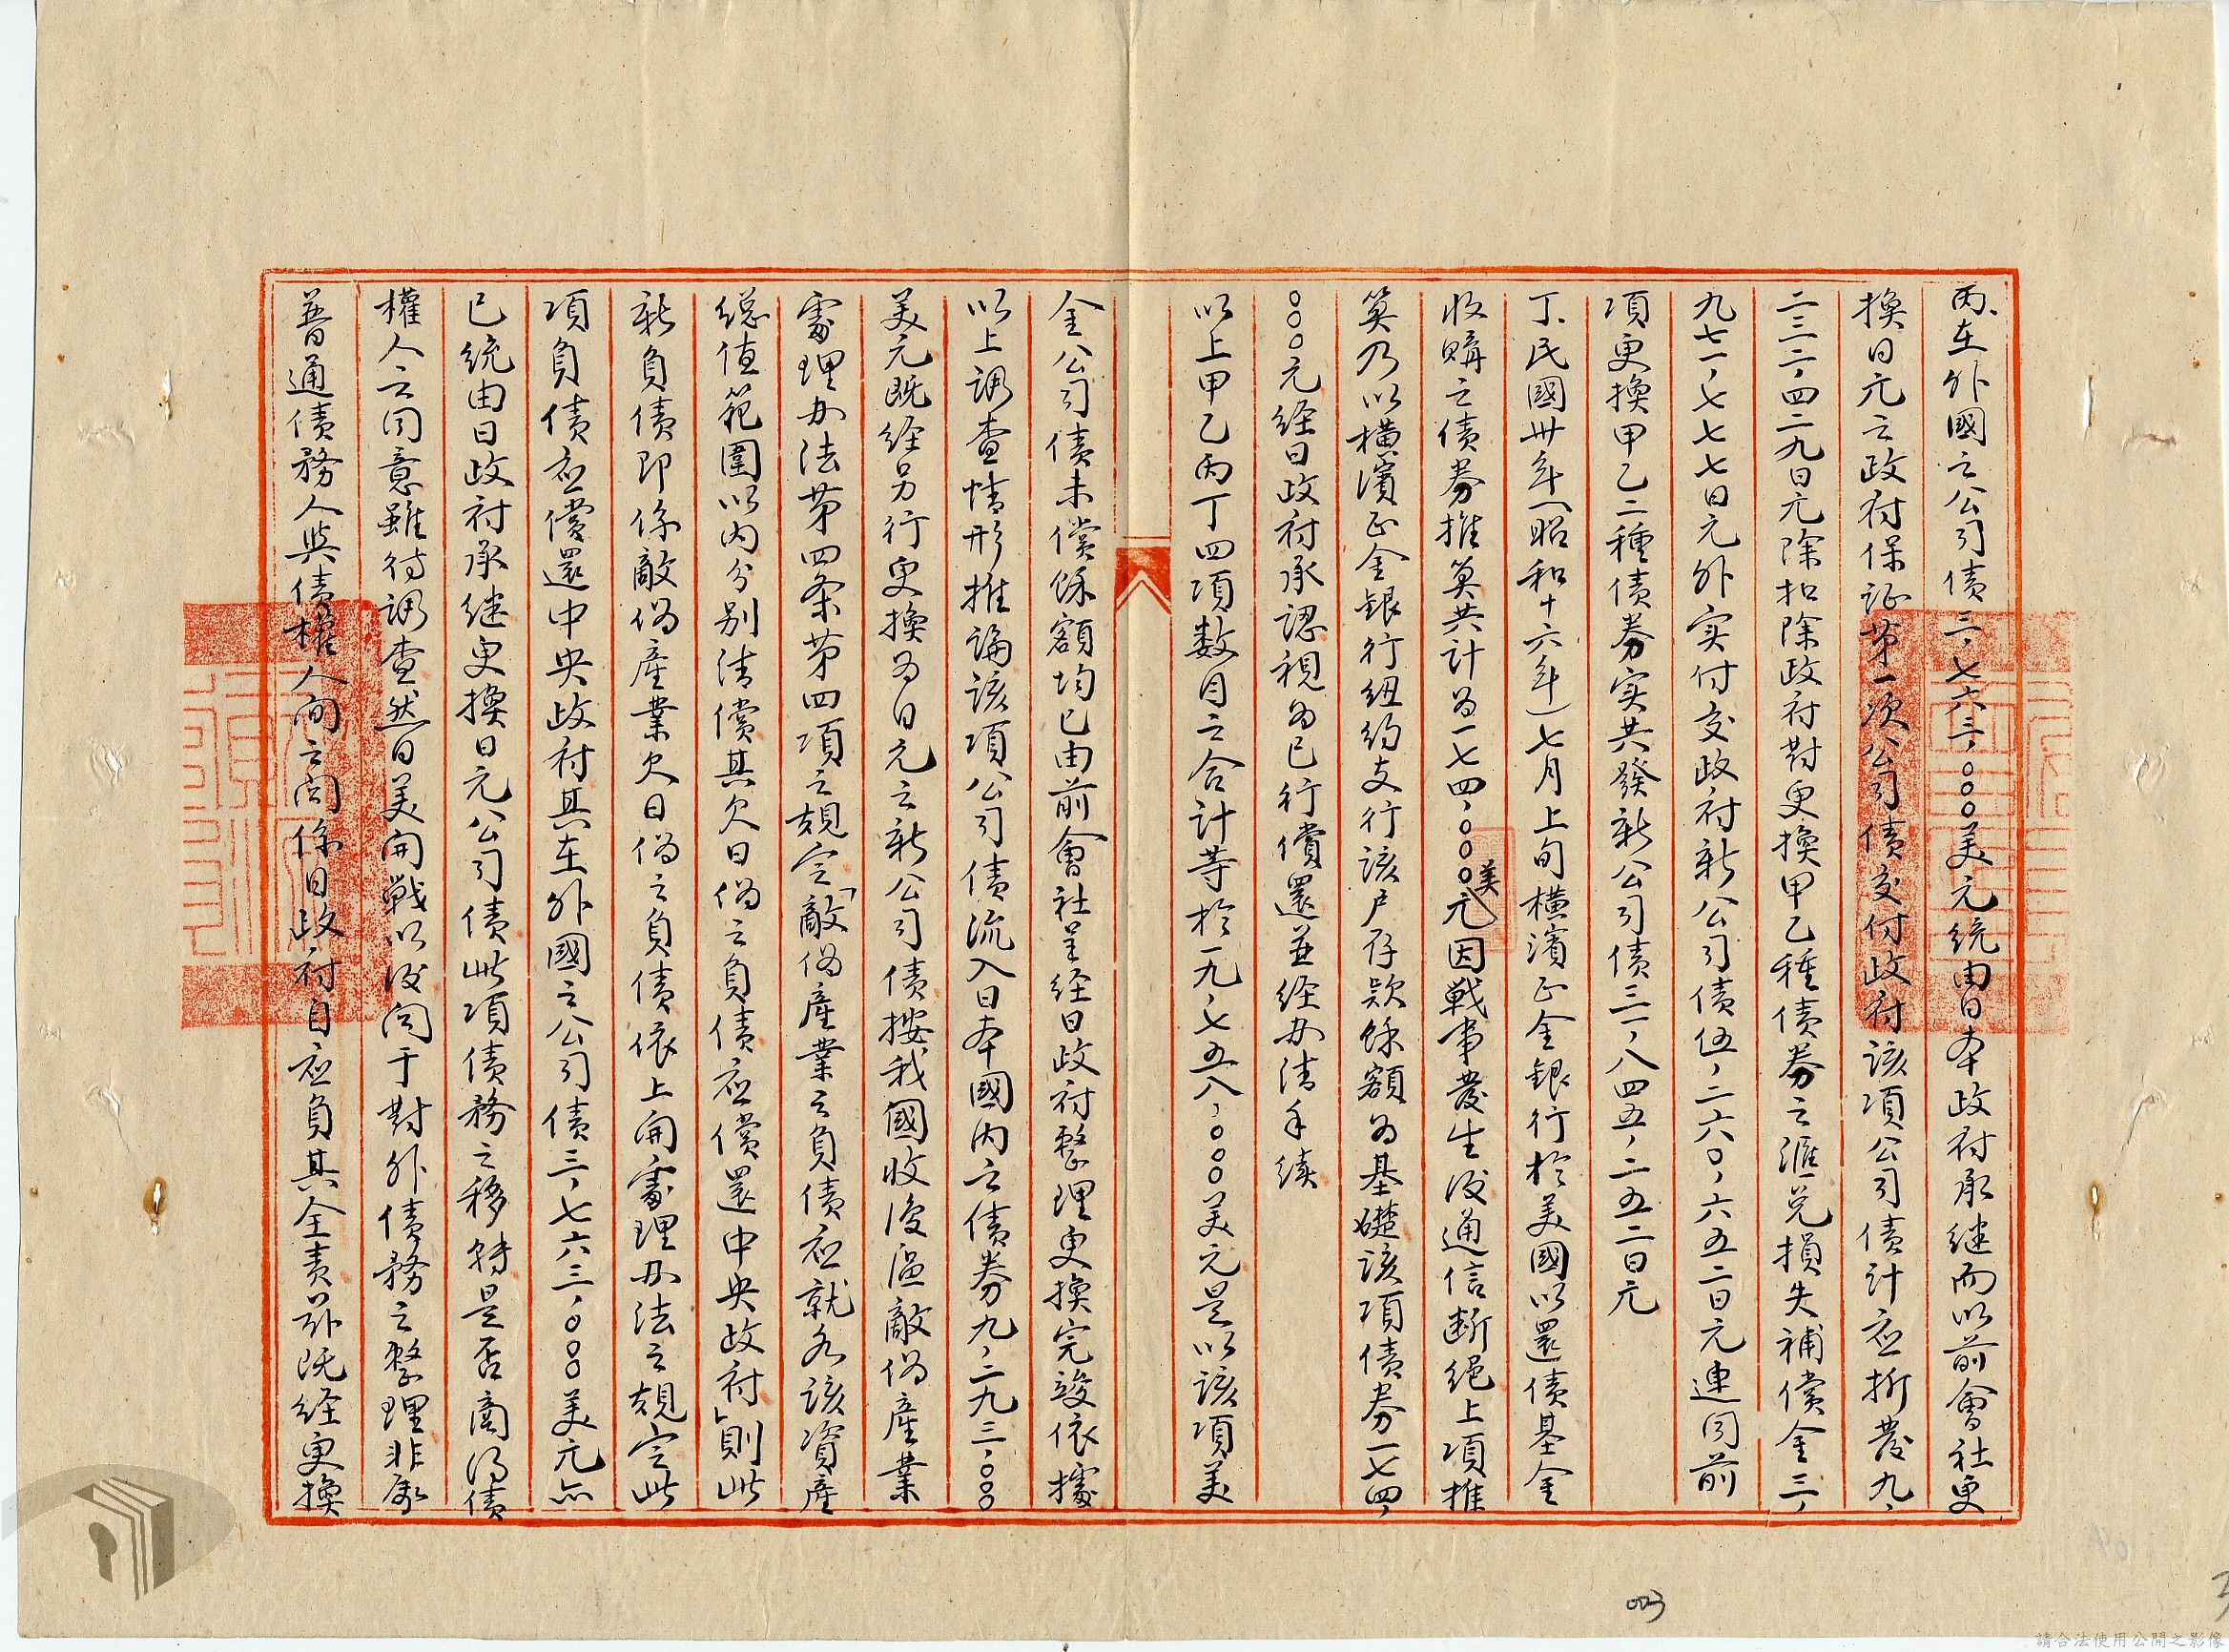 丙、在外國之公司債三、七六三、〇〇〇美元統由日本政府承继而以前會社更
換日元之政府保証第一次公司債交付政府該項公司債计应折發九、
二三二、四二九日元除扣除政府對更換甲乙種債券之滙兑損失補償金三、
九七一、七七七日元外实付交政府新公司債伍、二六〇、六五二日元連同前
項更換甲乙二種債券实共發新公司債三一、八四五、二五二日元
丁、民國卅年(昭和十六年)七月上旬橫濱正金銀行於美國以還債基金
收購之債券推算共计為一七四、〇〇〇美元因戰事發生後通信断绝上項推
算乃以橫濱正金銀行纽约支行該户存款餘額為基礎該項債券一七四、
〇〇〇元经日政府承認視為已行償還並经办清手续
以上甲乙丙丁四項数目之合计等於一九、七五八、〇〇〇美元是以該項美
金公司債未償餘額均已由前會社呈经日政府整理更換完竣依據
以上調查情形推論該項公司債流入日本國内之債券九、二九三、〇〇〇
美元既经另行更換為日元之新公司債按我國收復區敵偽產業
處理办法第四条第四項之規定「敵偽產業之負債应就各該資產
總值範圍以内分别清償其欠日偽之負債应償還中央政府」則此
新負債即係敵偽產業欠日偽之負債依上開處理办法之規定此
項負債应償還中央政府其在外國之公司債三、七六三、〇〇〇美元亦
已統由日政府承继更換日元公司債此項債務之移转是否商得債
權人之同意雖待調查然日美開戰以後関于對外債務之整理非屬
普通債務人與債權人间之関係日政府自应負其全責茲既经更換
003
請合法使用公開之影像